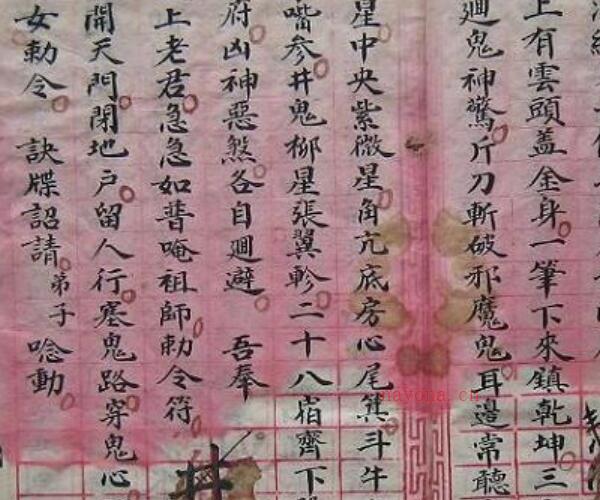 上有雲頭蓋金身一筆下來鎮乾坤三
廻鬼神驚斤刀斬破邪魔鬼耳邉常聽
星中央紫微星角亢底房心尾箕斗牛
嘴参井鬼柳星張翼軫二十八宿齊下
府凶神惡煞各自廻避 吾奉
上老君急急如普唵祖師勅令符
開天門閉地户留人行塞鬼路穿鬼心
女勅令 訣牒詔請弟子 唸動
井
nayona.cn